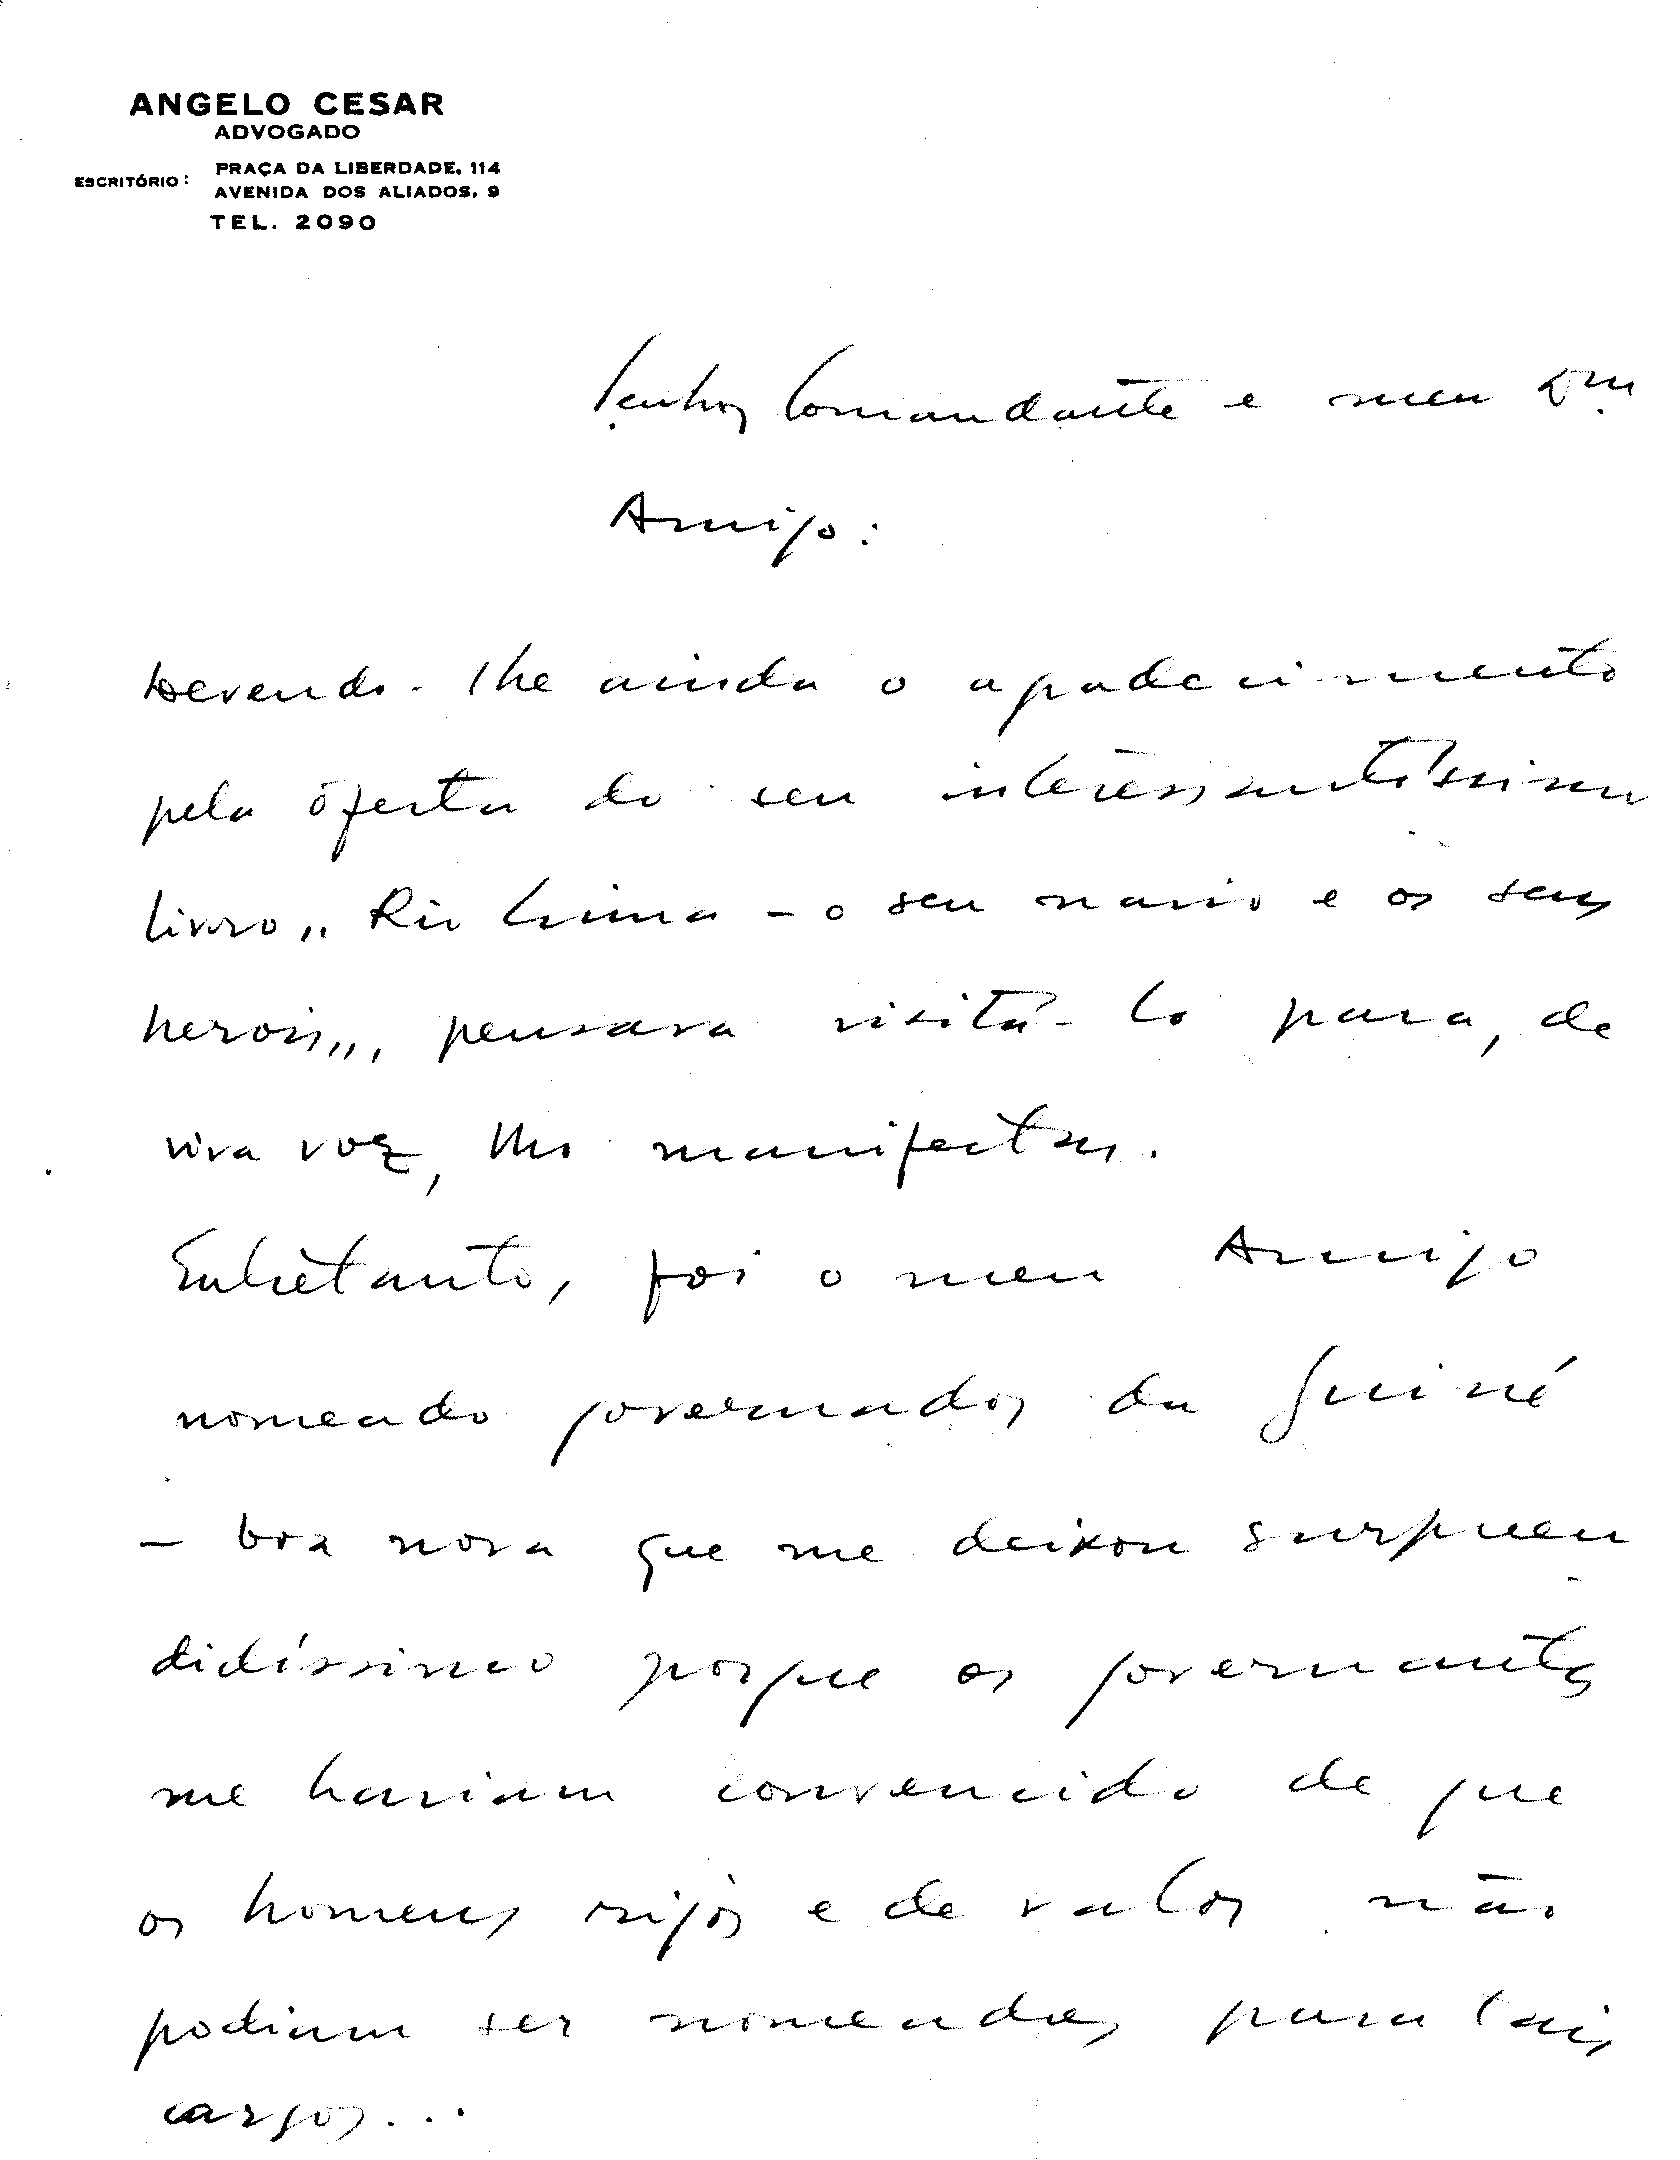 ANGELO CESAR
ADVOGADO
ESCRITÓRIO: PRAÇA DA LIBERDADE, 114
AVENIDA DOS ALIADOS, 9
TEL. 2090
Senhor Comandante e meu
Amigo:
Devendo-lhe ainda o agradecimento
pela oferta do seu interessantíssimo
livro „Rio Lima - o seu navio e os seus
herois„, pensava visitá-lo para, de
viva voz, lho manifestar.
Entretanto, foi o meu Amigo
nomeado governador da Guiné
- boa nova que me deixou surpreen
didíssimo porque os governantes
me haviam convencido de que
os homens rijos e de valor não
podiam ser nomeados para tais
cargos...